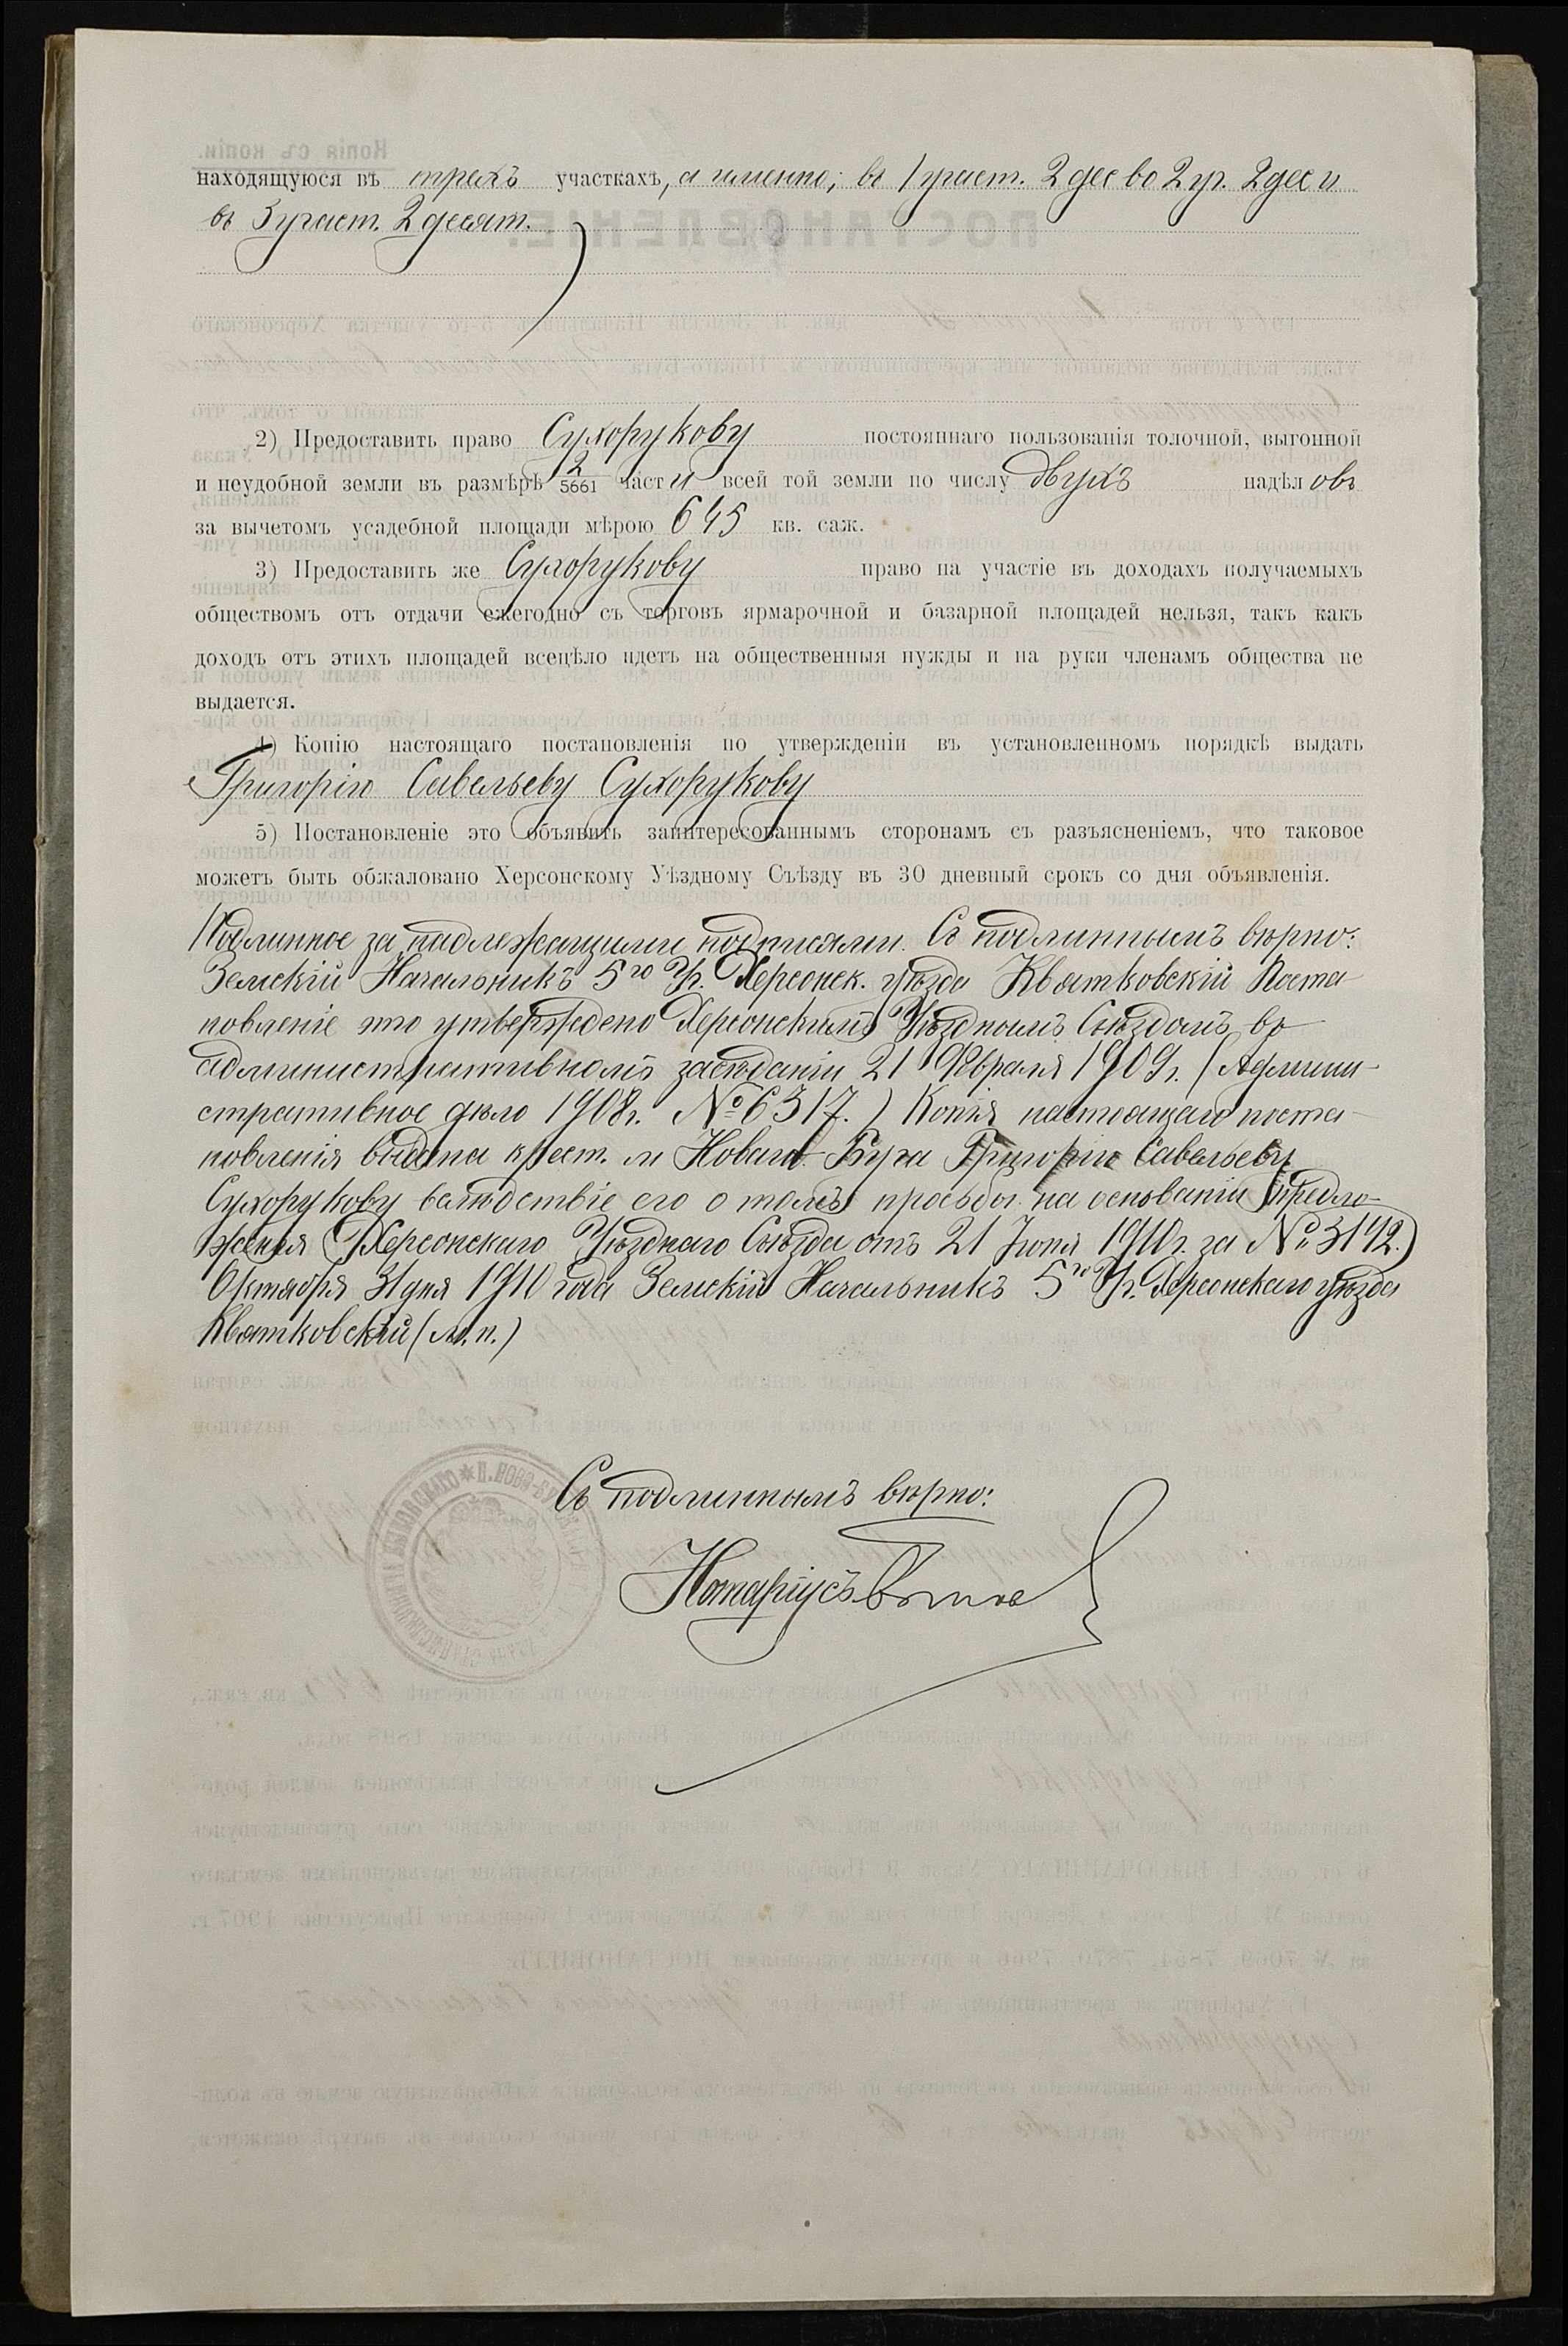 находящуюся въ трехъ участкахъ, а именно; въ 1 участ. 2 дес во 2 уч. 2 дес и
въ 3 участ. 2 десят.
2) Предоставить право Сухорукову постояннаго пользованія толочной, выгонной
и неудобной земли въ размѣрѣ 2/5661 части всей той земли по числу двухъ надѣловъ
за вычетомъ усадебной площади мѣрою 645 кв. саж.
3) Предоставить же Сухорукову право на участіе въ доходахъ получаемыхъ
обществомъ отъ отдачи ежегодно съ торговъ ярмарочной и базарной площадей нельзя, такъ какъ
доходъ отъ этихъ площадей всецѣло идетъ на общественныя нужды и на руки членамъ общества не
выдается.
4) Копію настоящаго постановленія по утвержденіи въ установленномъ порядкѣ выдать
Григорію Савельеву Сухорукову
5) Постановленіе это объявить заинтересованнымъ сторонамъ съ разъясненіемъ, что таковое
можетъ быть обжаловано Херсонскому Уѣздному Съѣзду въ 30 дневный срокъ со дня объявленія.
Подлинное за надлежащими подписями. Съ подлиннымъ вѣрно:
Земскій Начальникъ 5го Уч. Херсонск. уѣзда Квятковскій Поста-
новленіе это утверждено Херсонскимъ Уѣзднымъ Съѣздомъ въ
административномъ засѣданіи 21 Февраля 1909г. (Админи-
стративное дѣло 1908г. № 6317.) Копія настоящаго поста-
новленія выдана крест. м Новаго-Буга Григорію Савельеву
Сухорукову вслѣдствіе его о томъ просьбы на основаніи предло-
женія (Херсонскаго Уѣзднаго Съѣзда отъ 21 Іюня 1910г. за № 3142.)
Октября 31 дня 1910 года Земскій Начальникъ 5го Уч. Херсонскаго уѣзда
Квятковскій (м.п.)
Съ подлиннымъ вѣрно:
Нотаріусъ